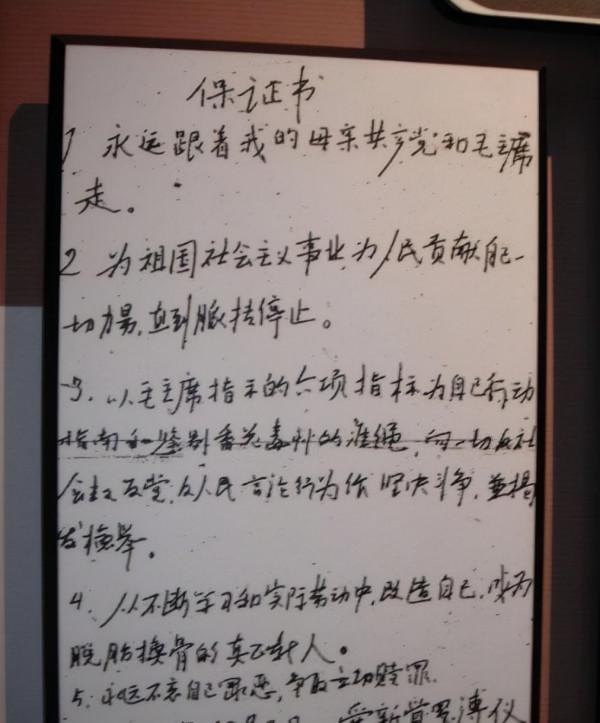 保证书
1 永远跟着我的母亲共产党和毛主席
走。
2 为祖国社会主义事业,为人民贡献自己一
切力量,直到脈搏停止。
3、以毛主席指示的六项指标为自己行动
指南和鉴别香花毒草的准绳,向一切反社
会主义反党,反人民言论行为作坚决斗争,並揭
发检举。
4、从不断学习和实际劳动中,改造自己,成为
脱胎换骨的真正新人。
5、永远不忘自己罪恶,争取立功赎罪。
爱新觉罗溥仪